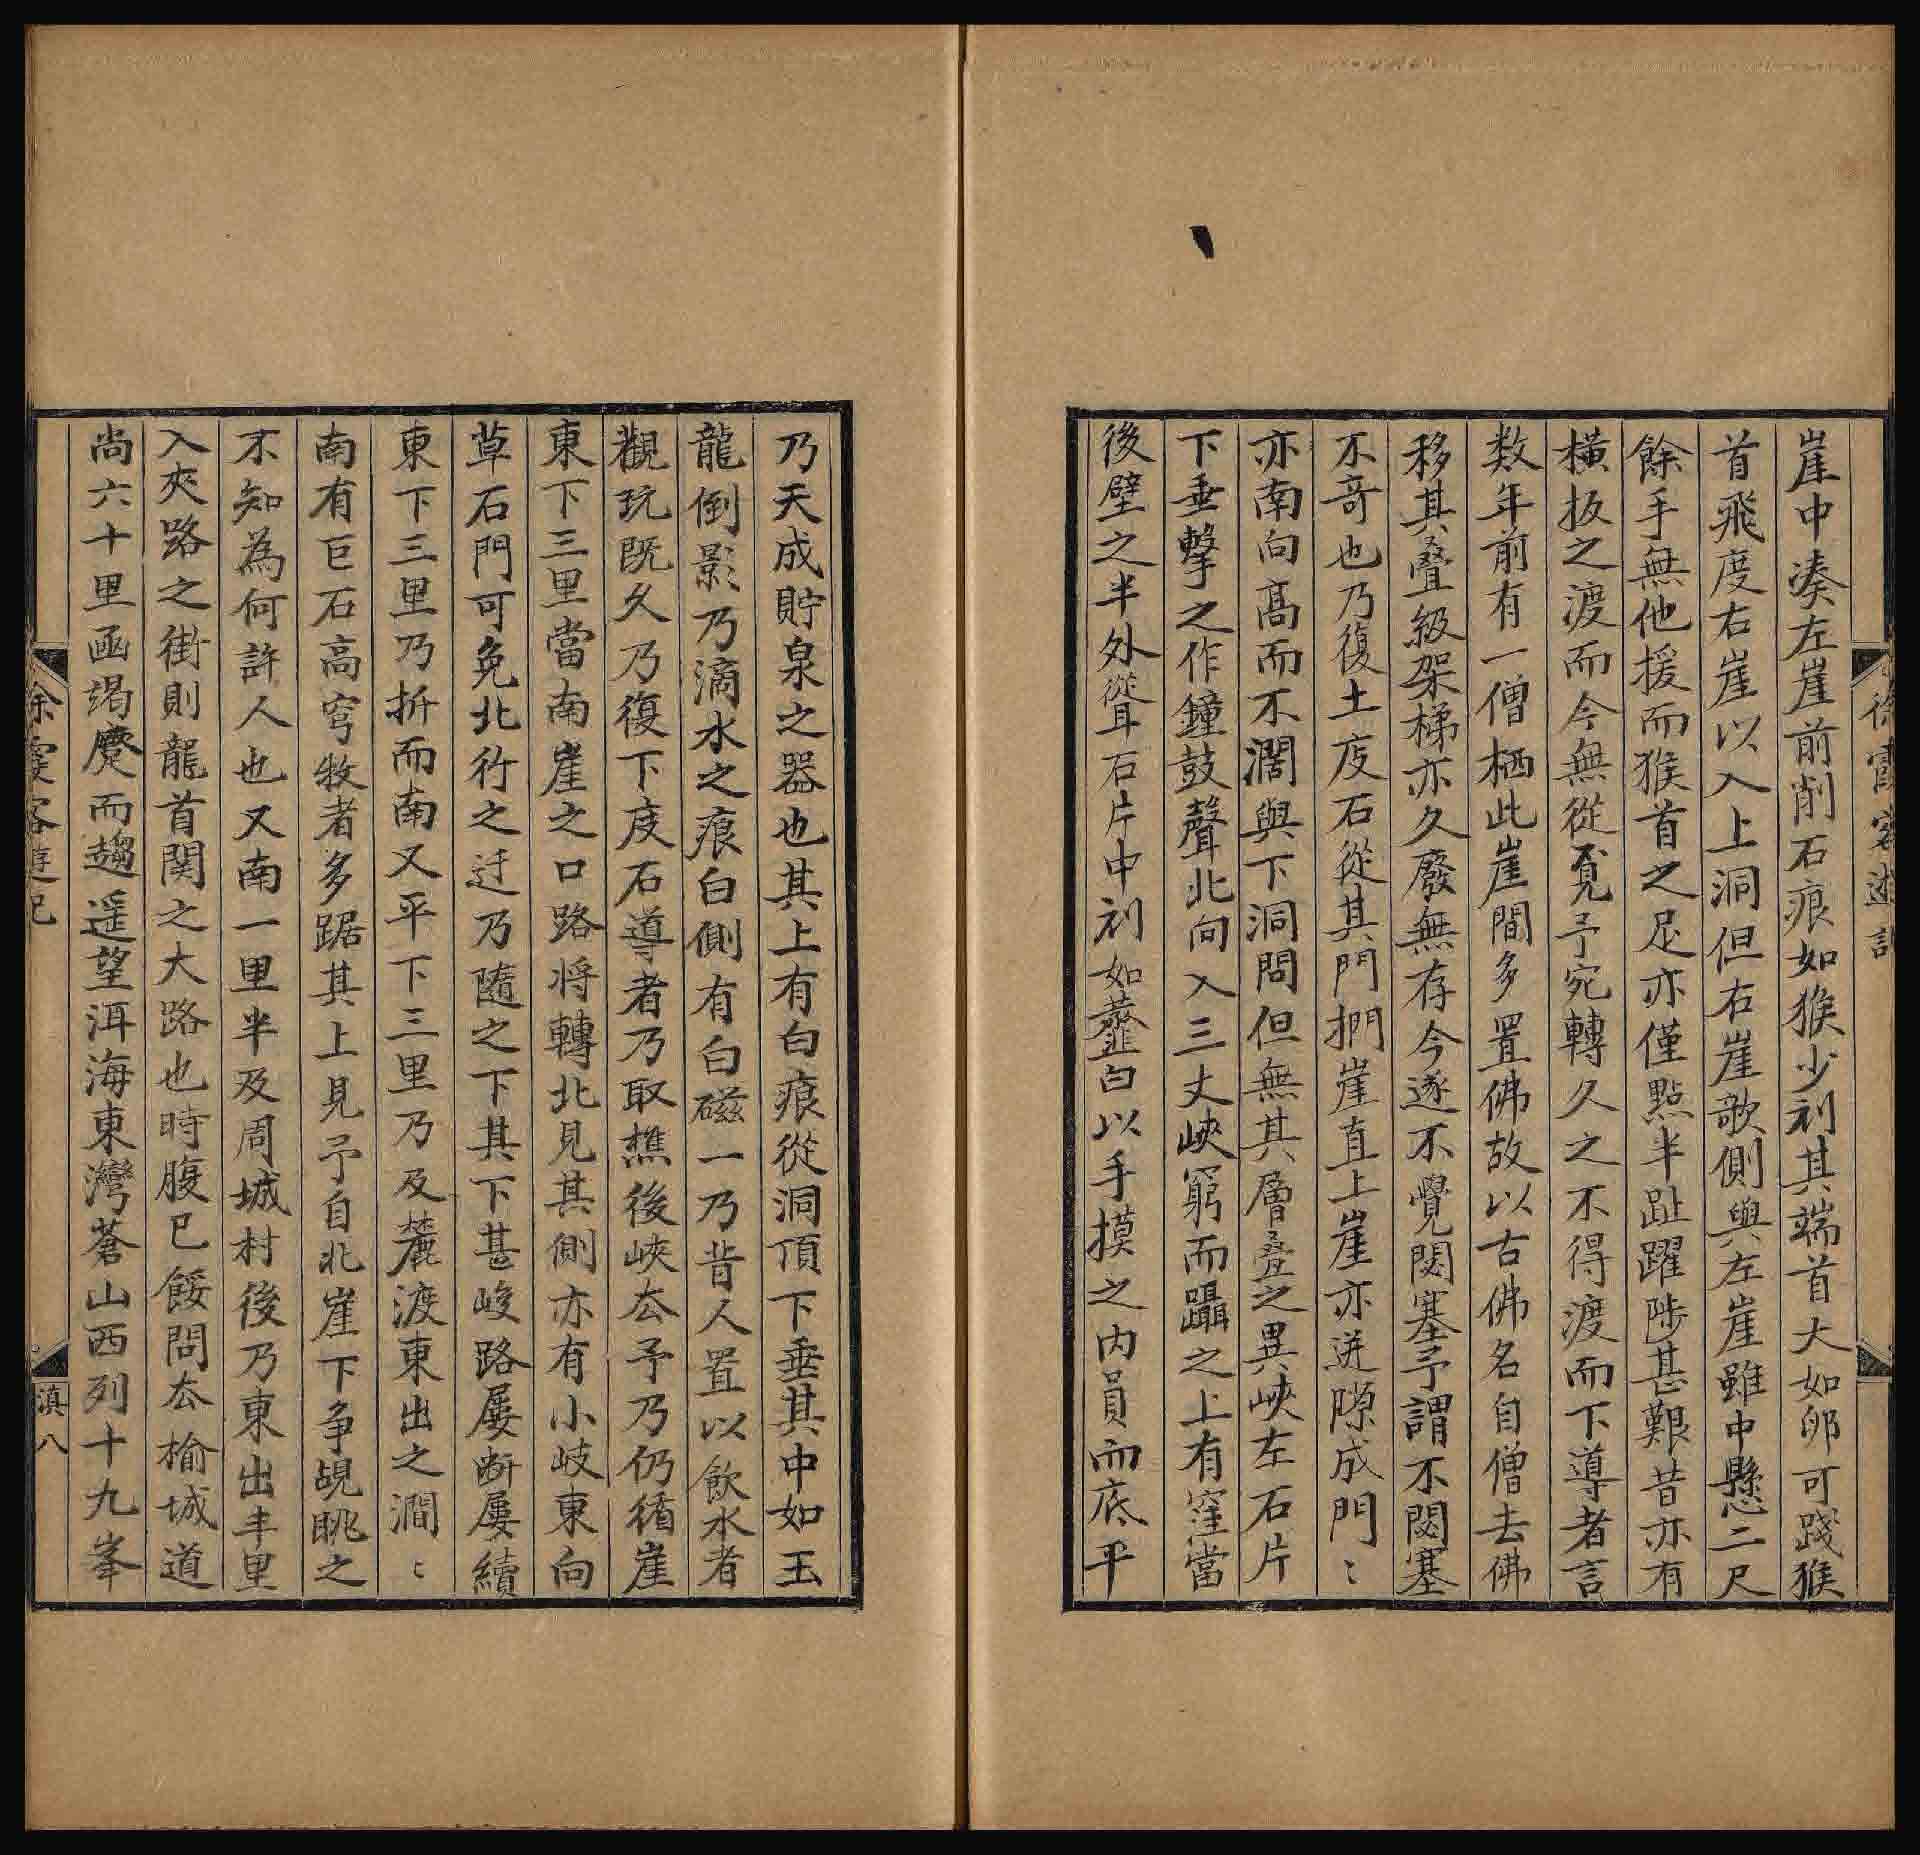 徐霞客遊記
崖中湊左崖前削石痕如猴少刓其端首大如卵可踐猴
首飛度右崖以入上洞但右崖欹側與左崖雖中懸二尺
餘手無他援而猴首之足亦僅點半趾躍陟甚艱昔亦有
橫板之渡而今無從覔予宛轉久之不得渡而下導者言
数年前有一僧栖此崖間多置佛故以古佛名自僧去佛
移其叠級架梯亦久廢無存今遂不覺閟塞予謂不閟塞
不竒也乃復土度石從其門捫崖直上崖亦迸隙成門〻
亦南向高而不濶與下洞問但無其層叠之異峽左石片
下垂擊之作鐘鼓聲北向入三丈峽窮而躡之上有窪當
後壁之半外聳石片中刓如虀臼以手摸之内員而底平
乃天成貯泉之器也其上有白痕從洞頂下垂其中如玉
龍倒影乃滴水之痕白側有白磁一乃昔人置以飲水者
觀玩既久乃復下度石導者乃取樵後峽厺予乃仍循崖
東下三里當南崖之口路将轉北見其側亦有小岐東向
草石門可免北行之迂乃隨之下其下甚峻路屢断屢續
東下三里乃折而南又平下三里乃及麓渡東出之澗〻
南有巨石高穹牧者多踞其上見予自北崖下争覘眺之
不知為何許人也又南一里半及周城村後乃東出半里
入夾路之街則龍首関之大路也時腹已餒問厺榆城道
尚六十里亟竭蹙而趨遥望洱海東灣蒼山西列十九峯
徐霞客遊記
滇八